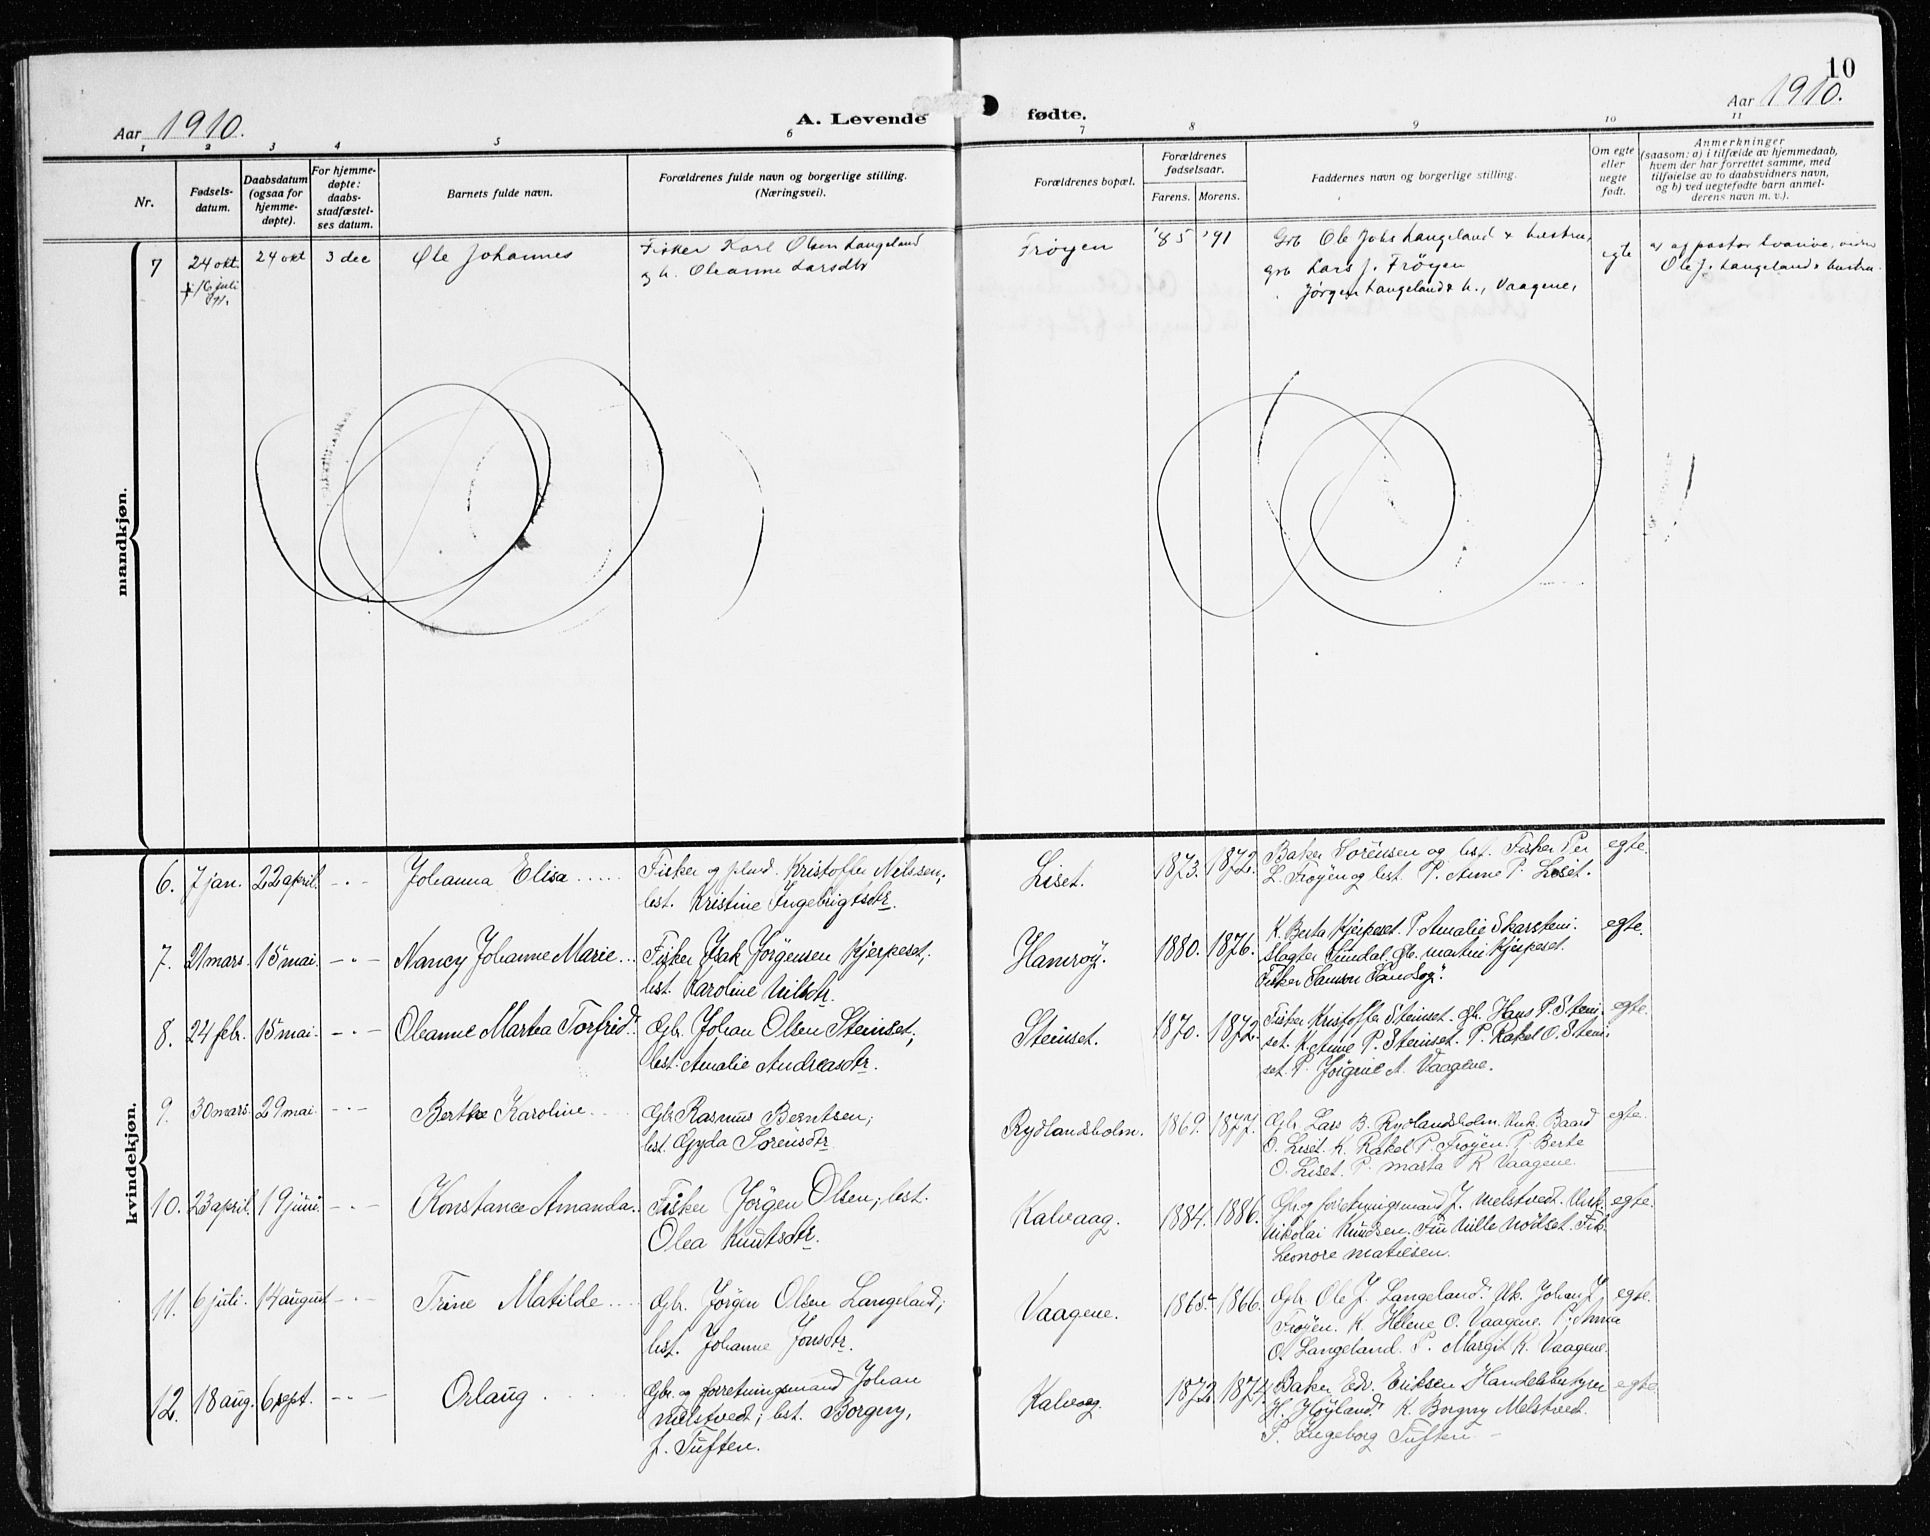 10
Aar 1910.
A. Levende fødte.
Aar 1910.
1 2 3 4 5 6 7 8 9 10 11
Nr.
Fødsels-
datum.
Daabsdatum
(ogsaa for
hjemme-
døpte).
For hjemme-
døpte:
daabs-
stadfæstel-
ses datum.
Barnets fulde navn.
Forældrenes fulde navn og borgerlige stilling.
(Næringsvei).
Forældrenes bopæl.
Forældrenes
fødselsaar.
Farens. Morens.
Faddernes navn og borgerlige stilling.
Om egte
eller
uegte
født.
Anmerkninger
(saasom: a) i tilfælde av hjemmedaab,
hvem der har forrettet samme, med
tilføielse av to daabsvidners navn,
og b) ved uegtefødte barn anmel-
derens navn m. v.).
mandkjøn.
7 24 okt. 24 okt 3 dec Ole Johannes Fisker Karl Olsen Langeland Frøyen '85 '91 Grb Ole Johs Langeland & hustru, egte
† 16 juli og h. Oleanne Larsdtr grb Lars J. Frøyen Ole J. Langeland & hustru.
Jørgen Langeland & h., Vaagene,
kvindekjøn.
6. 7 jan. 22 april. -"- Johanna Elisa Fisker og Kristoffer Nilssen, Liset. 1873. 1872. Baker Sörensen og hst. Fisker Per egte.
hst. Kristine Ingebrigtsdtr. L. Fröyen og hst. P. Anne P. Liset.
7. 21 mars. 15 mai. -"- Nancy Johanne Marie Fisker Isak Jörgensen Hjerpeset, Hamröy. 1880. 1876. K. Berta Hjerpeset. P. Amalie Skarstein. egte.
hst. Karoline Nilsdtr. Slagter Sundal. Gb. Martin Hjerpeset.
Fisker Samson Sandöy.
8. 24 febr. 15 mai. -"- Oleanne Martha Torfrid. Gbr. Johan Olsen Steinset, Steinset. 1870. 1872. Fisker Kristoffer Steinset. Gb. Hans P. Stein- egte.
hst. Amalie Andreasdtr. set. K. Anne P. Steinset. P. Rakel O. Stein-
set. P. Jörgine A. Vaagene.
9. 30 mars. 29 mai. -"- Berthe Karoline Gbr Rasmus Berntsen, Rydlandsholm. 1869. 1877. Gbr. Lars B. Rydlandsholm. Unk. Baard egte.
hst. Gyda Sörensdtr O. Liset. K. Rakel P. Fröyen. P. Berte
O. Liset. P. Marta R Vaagene.
10. 23 april. 19 juni. -"- Konstance Amanda. Fisker Jörgen Olsen, hst. Kalvaag. 1884. 1886. Gbr. og forretningsmand J. Melstvedt. Unk. egte.
Olea Knutsdtr. Nikolai Knudsen. Nille Nödset.
Leonore Matiesen.
11. 6 juli. 14 august -"- Trine Matilde Gbr. Jörgen Olsen Langeland, Vaagene. 1865 1866. Gbr. Ole J. Langeland. Unk. Johan J. egte.
hst. Johanne Jonsdtr. Fröyen. K. Helene O. Vaagene. P. Anna
O. Langeland. P. Margit K. Vaagene.
12. 18 aug. 6 sept. -"- Orlaug Gbr. og forretningsmand Johan Kalvaag. 1872. 1874. Baker Edv. Eriksen Handelsbestyrer egte.
Melstvedt, hst. Borgny, H. Höyland. K. Borgny Melstvedt.
f. Tuften. P. Ingeborg Tuften